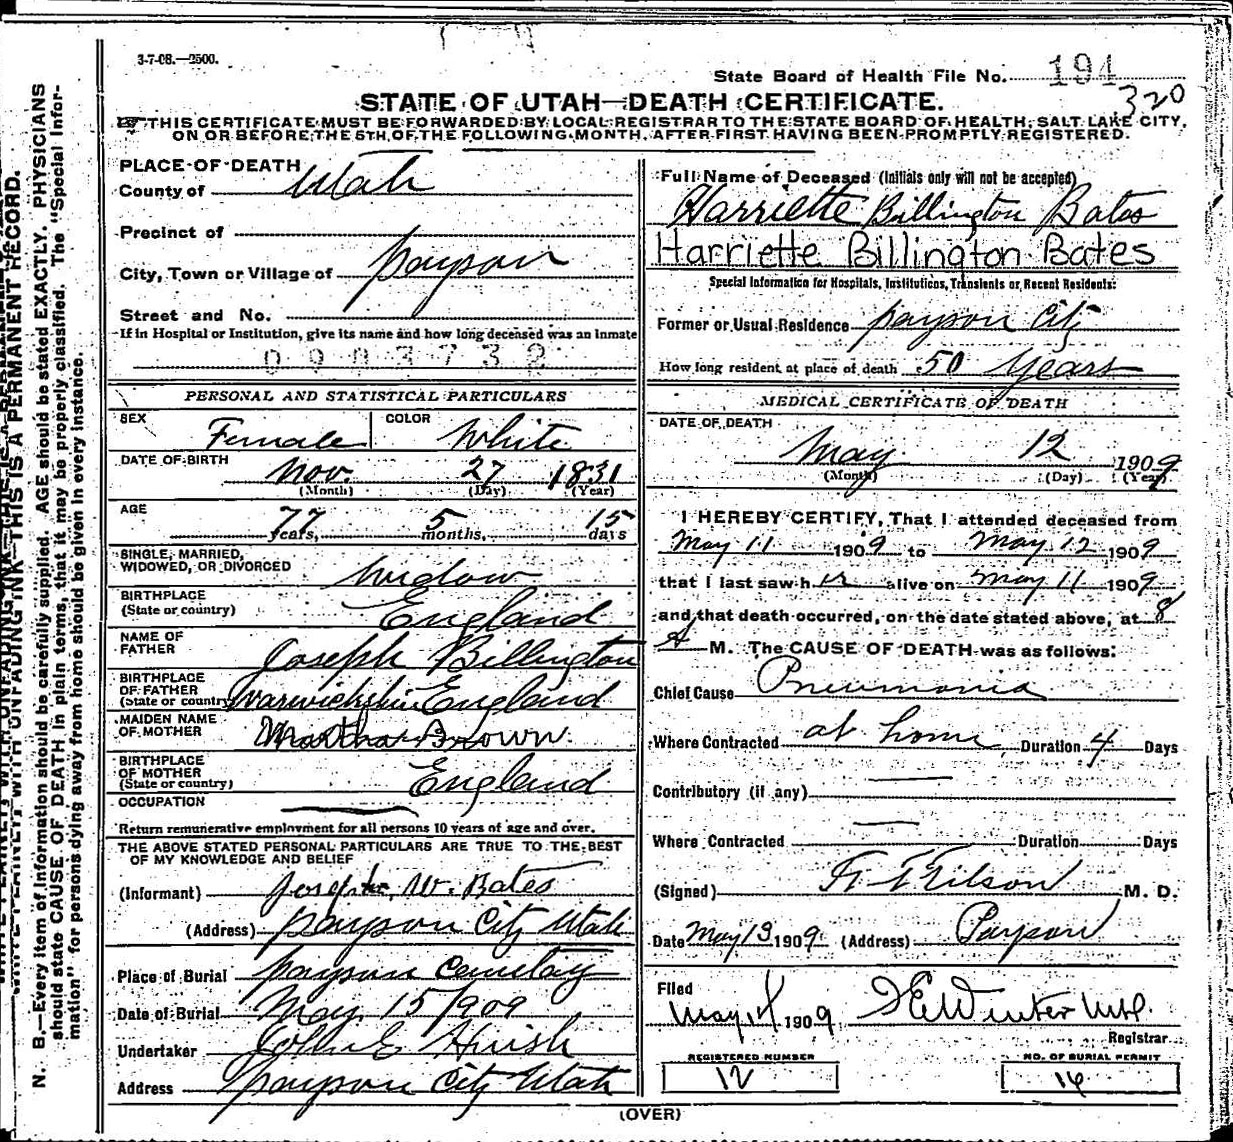 3-7-08.—2500.
State Board of Health File No. 194
320
STATE OF UTAH—DEATH CERTIFICATE.
THIS CERTIFICATE MUST BE FORWARDED BY LOCAL REGISTRAR TO THE STATE BOARD OF HEALTH, SALT LAKE CITY,
ON OR BEFORE THE 5TH OF THE FOLLOWING MONTH, AFTER FIRST HAVING BEEN PROMPTLY REGISTERED.
PLACE OF DEATH
County of Utah
Precinct of
City, Town or Village of Payson
Street and No.
If in Hospital or Institution, give its name and how long deceased was an inmate
0903732
PERSONAL AND STATISTICAL PARTICULARS
SEX Female COLOR White
DATE OF BIRTH Nov. 27 1831
(Month) (Day) (Year)
AGE 77 years, 5 months, 15 days
SINGLE, MARRIED,
WIDOWED, OR DIVORCED widow
BIRTHPLACE
(State or country) England
NAME OF
FATHER Joseph Billington
BIRTHPLACE
OF FATHER
(State or country) Warwickshire England
MAIDEN NAME
OF MOTHER Martha Brown
BIRTHPLACE
OF MOTHER
(State or country) England
OCCUPATION
Return remunerative employment for all persons 10 years of age and over.
THE ABOVE STATED PERSONAL PARTICULARS ARE TRUE TO THE BEST
OF MY KNOWLEDGE AND BELIEF
(Informant) Joseph W. Bates
(Address) Payson City Utah
Place of Burial Payson Cemetery
Date of Burial May 15/909
Undertaker John E Huish
Address Payson City Utah
Full Name of Deceased (Initials only will not be accepted)
Harriette Billington Bates
Harriette Billington Bates
Special Information for Hospitals, Institutions, Transients or Recent Residents:
Former or Usual Residence Payson City
How long resident at place of death 50 years
MEDICAL CERTIFICATE OF DEATH
DATE OF DEATH
May 12 1909
(Month) (Day) (Year)
I HEREBY CERTIFY, That I attended deceased from
May 11 1909 to May 12 1909
that I last saw her alive on May 11 1909
and that death occurred, on the date stated above, at 8
A M. The CAUSE OF DEATH was as follows:
Chief Cause Pneumonia
Where Contracted at home Duration 4 Days
Contributory (if any)
Where Contracted Duration Days
(Signed) M. D.
Date May 13 1909 (Address) Payson
Filed
May 1909 Winter M.D.
Registrar
REGISTERED NUMBER
12
NO. OF BURIAL PERMIT
14
(OVER)
THIS IS A PERMANENT RECORD.
N. B.—Every item of information should be carefully supplied. AGE should be stated EXACTLY. PHYSICIANS
should state CAUSE OF DEATH in plain terms, that it may be properly classified. The "Special Infor-
mation" for persons dying away from home should be given in every instance.